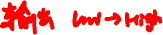 输出 Low→High